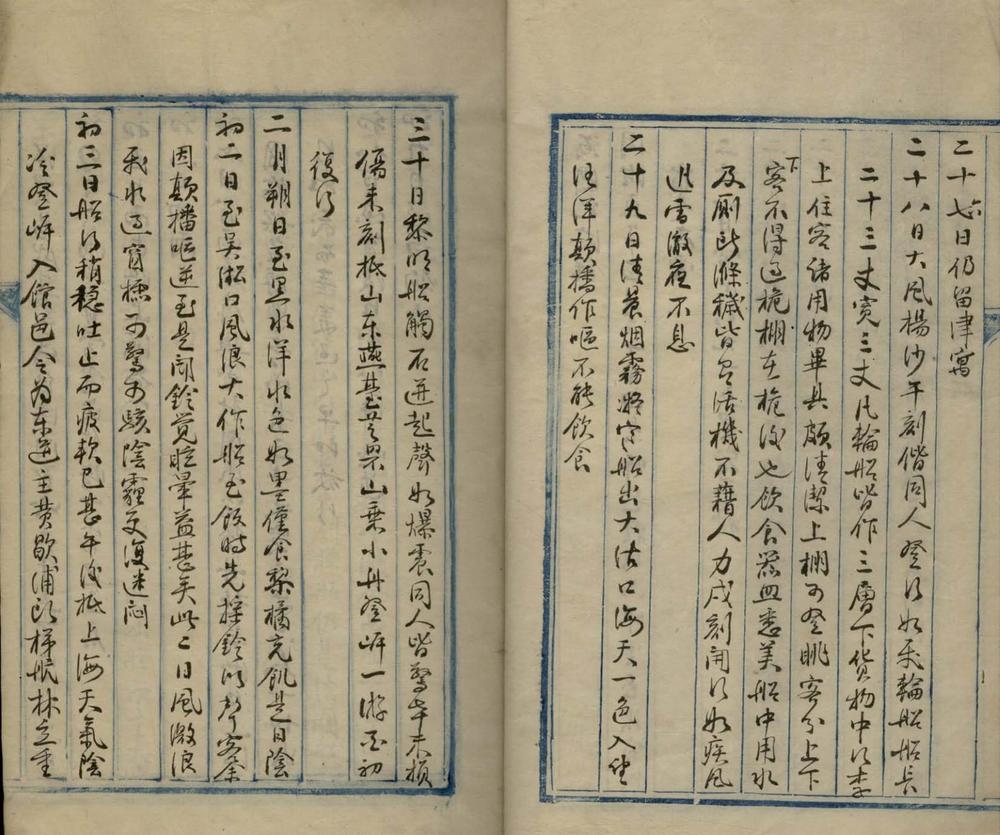 二十七日仍留津寓
二十八日大風揚沙午刻偕同人登行如飛輪船船長
二十三丈寬三丈凡輪船皆作三層下貨物中行李
上住客諸用物畢具頗清潔上棚可登眺客分上下
下客不得過桅棚在桅後也飲食器皿悉美船中用水
及厠所滌穢皆有活機不藉人力戌刻開行如疾風
迅雷徹夜不息
二十九日清晨烟霧凝空船出大沽口海天一色入望
汪洋顛播作嘔不能飲食
三十日黎明船觸石迸起聲如爆震同人皆驚幸未損
傷未刻抵山東燕臺芝罘山乘小舟登岸一游酉初
復行
二月朔日至黑水洋水色如墨僅食梨橘充飢是日陰
初二日至吳淞口風浪大作船至飯時先搖鈴以聲客余
因顛播嘔逆至是聞鈴覺眩暈益甚矣此二日風激浪
飛水過窗檽可驚可駭陰霾更復迷悶
初三日船行稍穩吐止而疲軟已甚午後抵上海天氣陰
冷登岸入館邑令為東道主黃歇浦頭梯航林立重